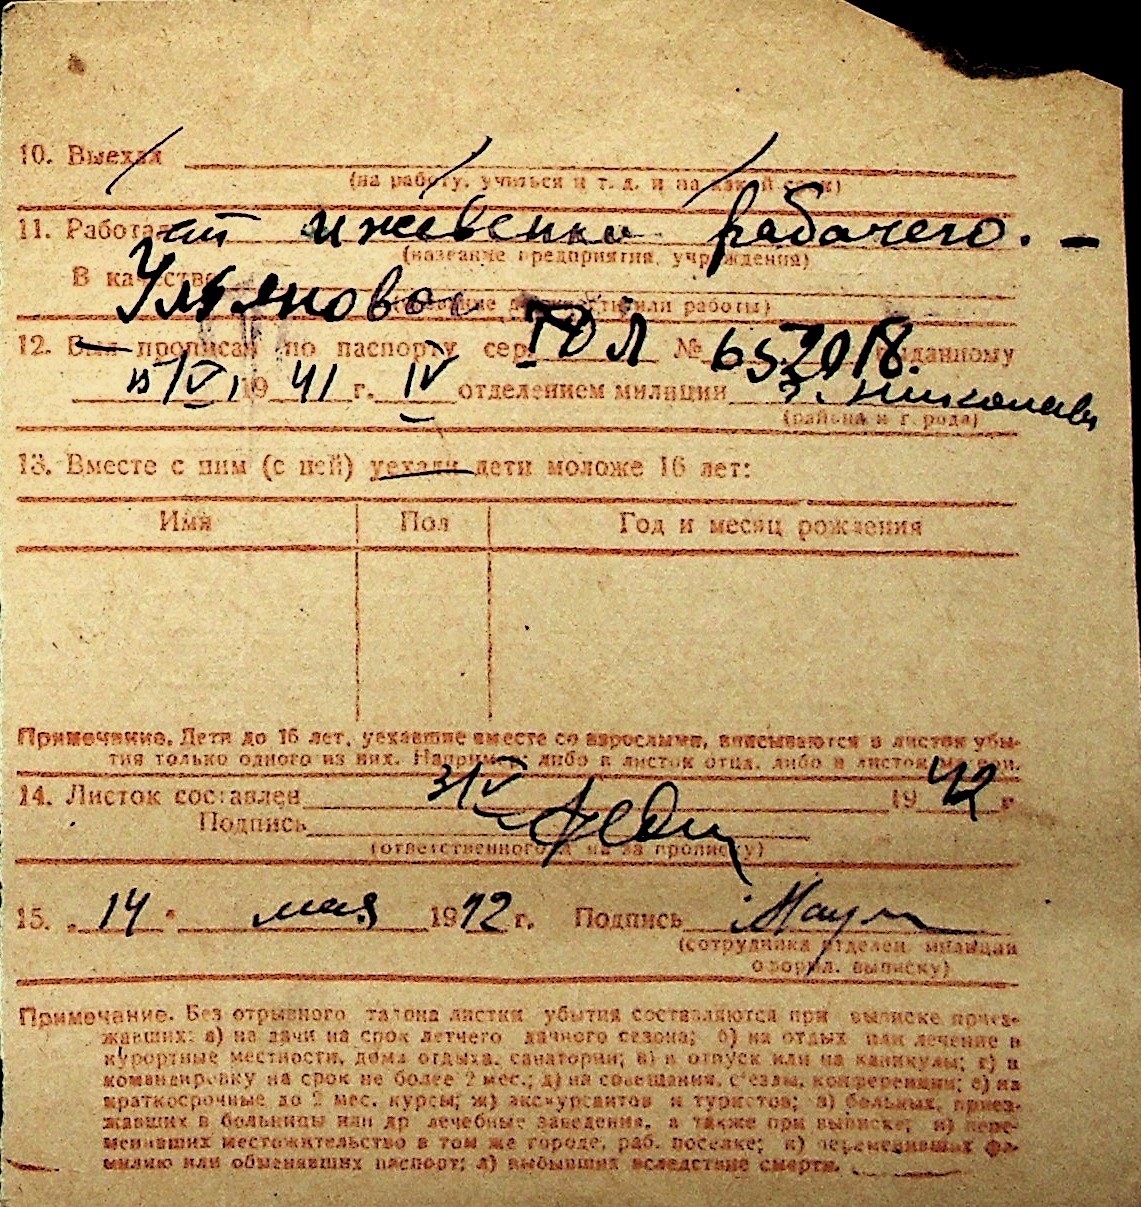 10. Выехал
(на работу, учиться и т. д. и на какой срок)
11. Работал ст. иждевении рабочего. –
(название предприятия, учреждения)
В качестве Ульяновой
(название должности или работы)
12. Был прописан по паспорту сер. № 652018. выданному
IV 1941 г. IV отделением милиции г. Николаев
(района и города)
13. Вместе с ним (с ней) уехали дети моложе 16 лет:
Имя Пол Год и месяц рождения
Примечание. Дети до 16 лет, уехавшие вместе со взрослыми, вписываются в листок убы-
тия только одного из них. Например: либо в листок отца, либо в листок матери.
14. Листок составлен 3/V 1942 г.
Подпись
(ответственного лица за прописку)
15. „14“ мая 1942 г. Подпись
(сотрудника отделен. милиции
оформл. выписку)
Примечание. Без отрывного талона листки убытия составляются при выписке приез-
жавших: а) на дачи на срок летнего дачного сезона; б) на отдых или лечение в
курортные местности, дома отдыха, санатории; в) в отпуск или на каникулы; г) в
командировку на срок не более 2 мес.; д) на совещания, съезды, конференции; е) на
краткосрочные до 2 мес. курсы; ж) экскурсантов и туристов; з) больных, приез-
жавших в больницы или др. лечебные заведения, а также при выписке; и) пере-
менивших местожительство в том же городе, раб. поселке; к) переменивших фа-
милию или обменявших паспорт; л) выбывших вследствие смерти.